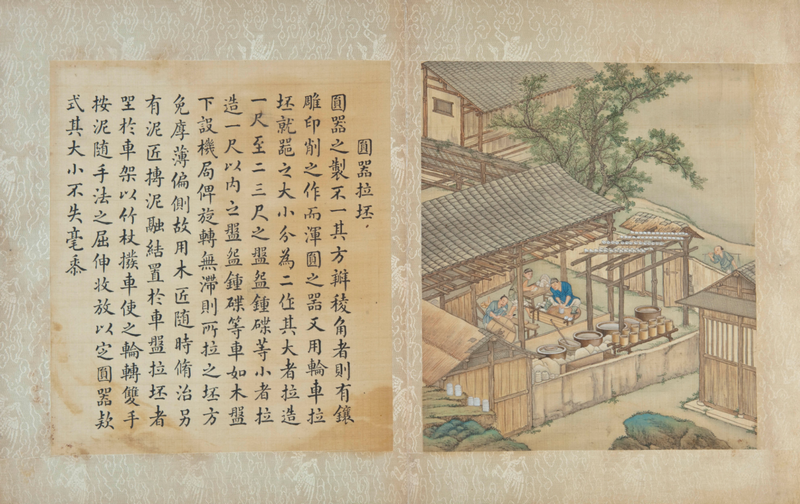 圓器拉坯
圓器之製不一其方瓣稜角者則有鑲
雕印削之作而渾圓之器又用輪車拉
坯就器之大小分為二作其大者拉造
一尺至二三尺之盤盌鍾碟等小者拉
造一尺以內之盤盌鍾碟等車如木盤
下設機局俾旋轉無滯則所拉之坯方
免厚薄偏側故用木匠隨時脩治另
有泥匠摶泥融結置於車盤拉坯者
坐於車架以竹杖撥車使之輪轉雙手
按泥隨手法之屈伸收放以定圓器款
式其大小不失毫黍